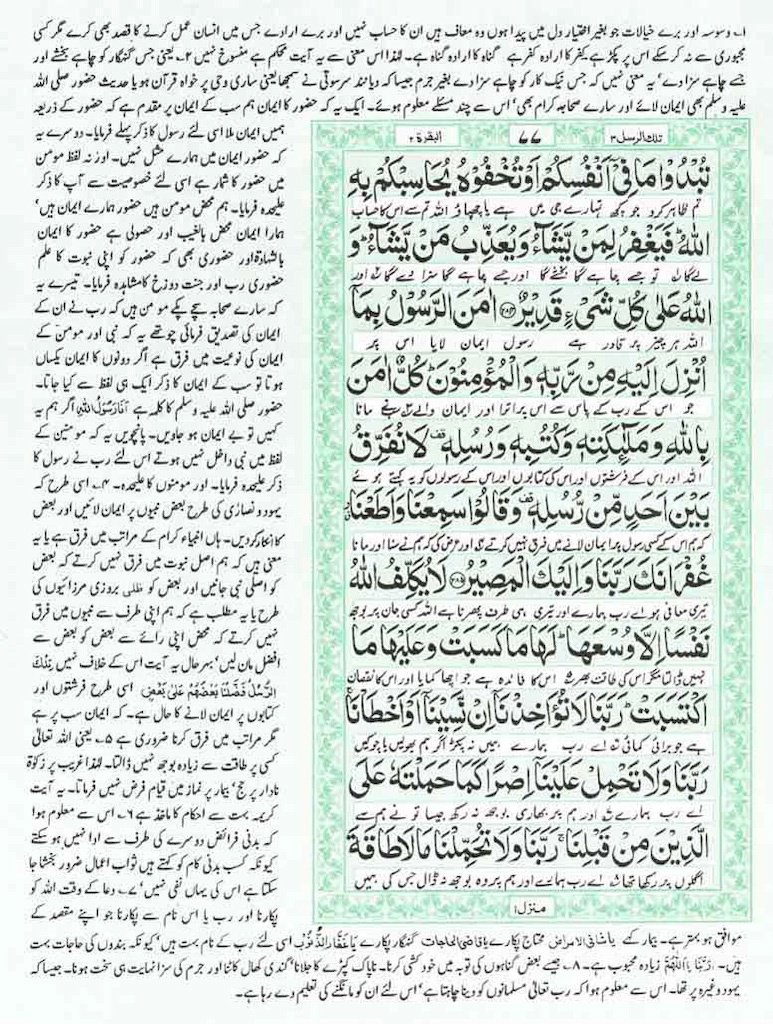 ۱۔ وسوسہ اور برے خیالات جو بغیر اختیار دل میں پیدا ہوں وہ معاف ہیں ان کا حساب نہیں اور برے ارادے جس میں انسان عمل کرنے کا قصد بھی کرے مگر کسی
مجبوری سے نہ کر سکے اس پر پکڑ ہے کفر کا ارادہ کفر ہے گناہ کا ارادہ گناہ ہے۔ لہٰذا اس معنی سے یہ آیت محکم ہے منسوخ نہیں ۲۔ یعنی جس گنہگار کو چاہے بخشے اور
جسے چاہے سزا دے' یہ معنی نہیں کہ جس نیک کار کو چاہے سزا دے بغیر جرم جیسا کہ دیانند سرسوتی نے سمجھا یعنی ساری وحی پر خواہ قرآن ہو یا حدیث حضور صلی اللہ
علیہ وسلم بھی ایمان لائے اور سارے صحابہ کرام بھی' اس سے چند مسئلے معلوم ہوئے۔ ایک یہ کہ حضور کا ایمان ہم سب کے ایمان پر مقدم ہے کہ حضور کے ذریعہ
تلك الرسل ۳ ۷۷ البقرة ۲
تُبْدُوْا مَا فِیْۤ اَنْفُسِكُمْ اَوْ تُخْفُوْهُ یُحَاسِبْكُمْ بِهِ
تم ظاہر کرو جو کچھ تمہارے جی میں ہے یا چھپاؤ اللہ تم سے اس کا حساب
اللّٰهُ ؕ فَیَغْفِرُ لِمَنْ یَّشَآءُ وَ یُعَذِّبُ مَنْ یَّشَآءُ ؕ وَ
لے گا ف۱ تو جسے چاہے گا بخشے گا اور جسے چاہے گا سزا دے گا ف۲ اور
اللّٰهُ عَلٰى كُلِّ شَیْءٍ قَدِیْرٌ ﴿۲۸۴﴾ اٰمَنَ الرَّسُوْلُ بِمَاۤ
اللہ ہر چیز پر قادر ہے رسول ایمان لایا اس پر
اُنْزِلَ اِلَیْهِ مِنْ رَّبِّهٖ وَ الْمُؤْمِنُوْنَ ؕ كُلٌّ اٰمَنَ
جو اس کے رب کے پاس سے اس پر اترا اور ایمان والے ف۳ سب نے مانا
بِاللّٰهِ وَ مَلٰٓىِٕكَتِهٖ وَ كُتُبِهٖ وَ رُسُلِهٖ ۫ لَا نُفَرِّقُ
اللہ اور اس کے فرشتوں اور اس کی کتابوں اور اس کے رسولوں کو یہ کہتے ہوئے
بَیْنَ اَحَدٍ مِّنْ رُّسُلِهٖ ۫ وَ قَالُوْا سَمِعْنَا وَ اَطَعْنَا
کہ ہم اس کے کسی رسول پر ایمان لانے میں فرق نہیں کرتے ف۴ اور عرض کی کہ ہم نے سنا اور مانا
غُفْرَانَكَ رَبَّنَا وَ اِلَیْكَ الْمَصِیْرُ ﴿۲۸۵﴾ لَا یُكَلِّفُ اللّٰهُ
تیری معافی ہو اے رب ہمارے اور تیری ہی طرف پھرنا ہے اللہ کسی جان پر بوجھ
نَفْسًا اِلَّا وُسْعَهَا ؕ لَهَا مَا كَسَبَتْ وَ عَلَیْهَا مَا
نہیں ڈالتا مگر اس کی طاقت بھر ف۵ اس کا فائدہ ہے جو اچھا کمایا اور اس کا نقصان
اكْتَسَبَتْ ؕ رَبَّنَا لَا تُؤَاخِذْنَاۤ اِنْ نَّسِیْنَاۤ اَوْ اَخْطَاْنَا ۚ
ہے جو برائی کمائی ف۶ اے رب ہمارے ہمیں نہ پکڑ اگر ہم بھولیں یا چوکیں
رَبَّنَا وَ لَا تَحْمِلْ عَلَیْنَاۤ اِصْرًا كَمَا حَمَلْتَهٗ عَلَى
اے رب ہمارے ف۷ اور ہم پر بھاری بوجھ نہ رکھ جیسا تو نے ہم سے
الَّذِیْنَ مِنْ قَبْلِنَا ۚ رَبَّنَا وَ لَا تُحَمِّلْنَا مَا لَا طَاقَةَ
اگلوں پر رکھا تھا ف۸ اے رب ہمارے اور ہم پر وہ بوجھ نہ ڈال جس کی ہمیں
منزل ۱
ہمیں ایمان ملا اسی لئے رسول کا ذکر پہلے فرمایا۔ دوسرے یہ
کہ حضور ایمان میں ہمارے مثل نہیں۔ اور نہ لفظ مومن
میں حضور کا شمار ہے اسی لئے خصوصیت سے آپ کا ذکر
علیحدہ فرمایا۔ ہم محض مومن ہیں حضور ہمارے ایمان ہیں'
ہمارا ایمان محض بالغیب اور حصولی ہے حضور کا ایمان
بالشہادۃ اور حضوری بھی کہ حضور کو اپنی نبوت کا علم
حضوری رب اور جنت دوزخ کا مشاہدہ فرمایا۔ تیسرے یہ
کہ سارے صحابہ سچے پکے مومن ہیں کہ رب نے ان کے
ایمان کی تصدیق فرمائی چوتھے یہ کہ نبی اور مومن کے
ایمان کی نوعیت میں فرق ہے اگر دونوں کا ایمان یکساں
ہوتا تو سب کے ایمان کا ذکر ایک ہی لفظ سے کیا جاتا۔
حضور صلی اللہ علیہ وسلم کا کلمہ ہے اَنَا رَسُوْلُ اللّٰهِ اگر ہم یہ
کہیں تو بے ایمان ہو جاویں۔ پانچویں یہ کہ مومنین کے
لفظ میں نبی داخل نہیں ہوتے اس لئے رب نے رسول کا
ذکر علیحدہ فرمایا۔ اور مومنوں کا علیحدہ۔ ۴۔ اسی طرح کہ
یہود و نصاریٰ کی طرح بعض نبیوں پر ایمان لائیں اور بعض
کا انکار کردیں۔ ہاں انبیاء کرام کے مراتب میں فرق ہے یا یہ
معنی ہیں کہ ہم اصل نبوت میں فرق نہیں کرتے کہ بعض
کو اصلی نبی جانیں اور بعض کو ظلی بروزی مرزائیوں کی
طرح یا یہ مطلب ہے کہ ہم اپنی طرف سے نبیوں میں فرق
نہیں کرتے کہ محض اپنی رائے سے بعض کو بعض سے
افضل مان لیں' بہرحال یہ آیت اس کے خلاف نہیں تِلْكَ
الرُّسُلُ فَضَّلْنَا بَعْضَهُمْ عَلٰى بَعْضٍ اسی طرح فرشتوں اور
کتابوں پر ایمان لانے کا حال ہے۔ کہ ایمان سب پر ہے
مگر مراتب میں فرق کرنا ضروری ہے ۵۔ یعنی اللہ تعالیٰ
کسی پر طاقت سے زیادہ بوجھ نہیں ڈالتا۔ لہٰذا غریب پر زکوٰۃ
نادار پر حج' بیمار پر نماز میں قیام فرض نہیں فرماتا۔ یہ آیت
کریمہ بہت سے احکام کا ماخذ ہے ۶۔ اس سے معلوم ہوا
کہ بدنی فرائض دوسرے کی طرف سے ادا نہیں ہو سکتے
کیونکہ کسب بدنی کام کو کہتے ہیں ثواب اعمال ضرور بخشا جا
سکتا ہے اس کی یہاں نفی نہیں' ۷۔ دعا کے وقت اللہ کو
پکارنا اور رب یا اس نام سے پکارنا جو اپنے مقصد کے
موافق ہو بہتر ہے۔ بیمار کہے یا شافی الامراض محتاج پکارے یا قاضی الحاجات گنہگار پکارے یَا غَفَّارَ الذُّنُوْبِ اسی لئے رب کے نام بہت ہیں' کیونکہ بندوں کی حاجات بہت
ہیں۔ رَبَّنَا یا اَللّٰهُمَّ زیادہ محبوب ہے۔ ۸۔ جیسے بعض گناہوں کی توبہ میں خود کشی کرنا۔ ناپاک کپڑے کا جلانا' گندی کھال کاٹنا اور جرم کی سزا نہایت ہی سخت ہونا۔ جیسا کہ
یہود وغیرہ پر تھا۔ اس سے معلوم ہوا کہ رب تعالیٰ مسلمانوں کو دینا چاہتا ہے' اس لئے ان کو مانگنے کی تعلیم دے رہا ہے۔